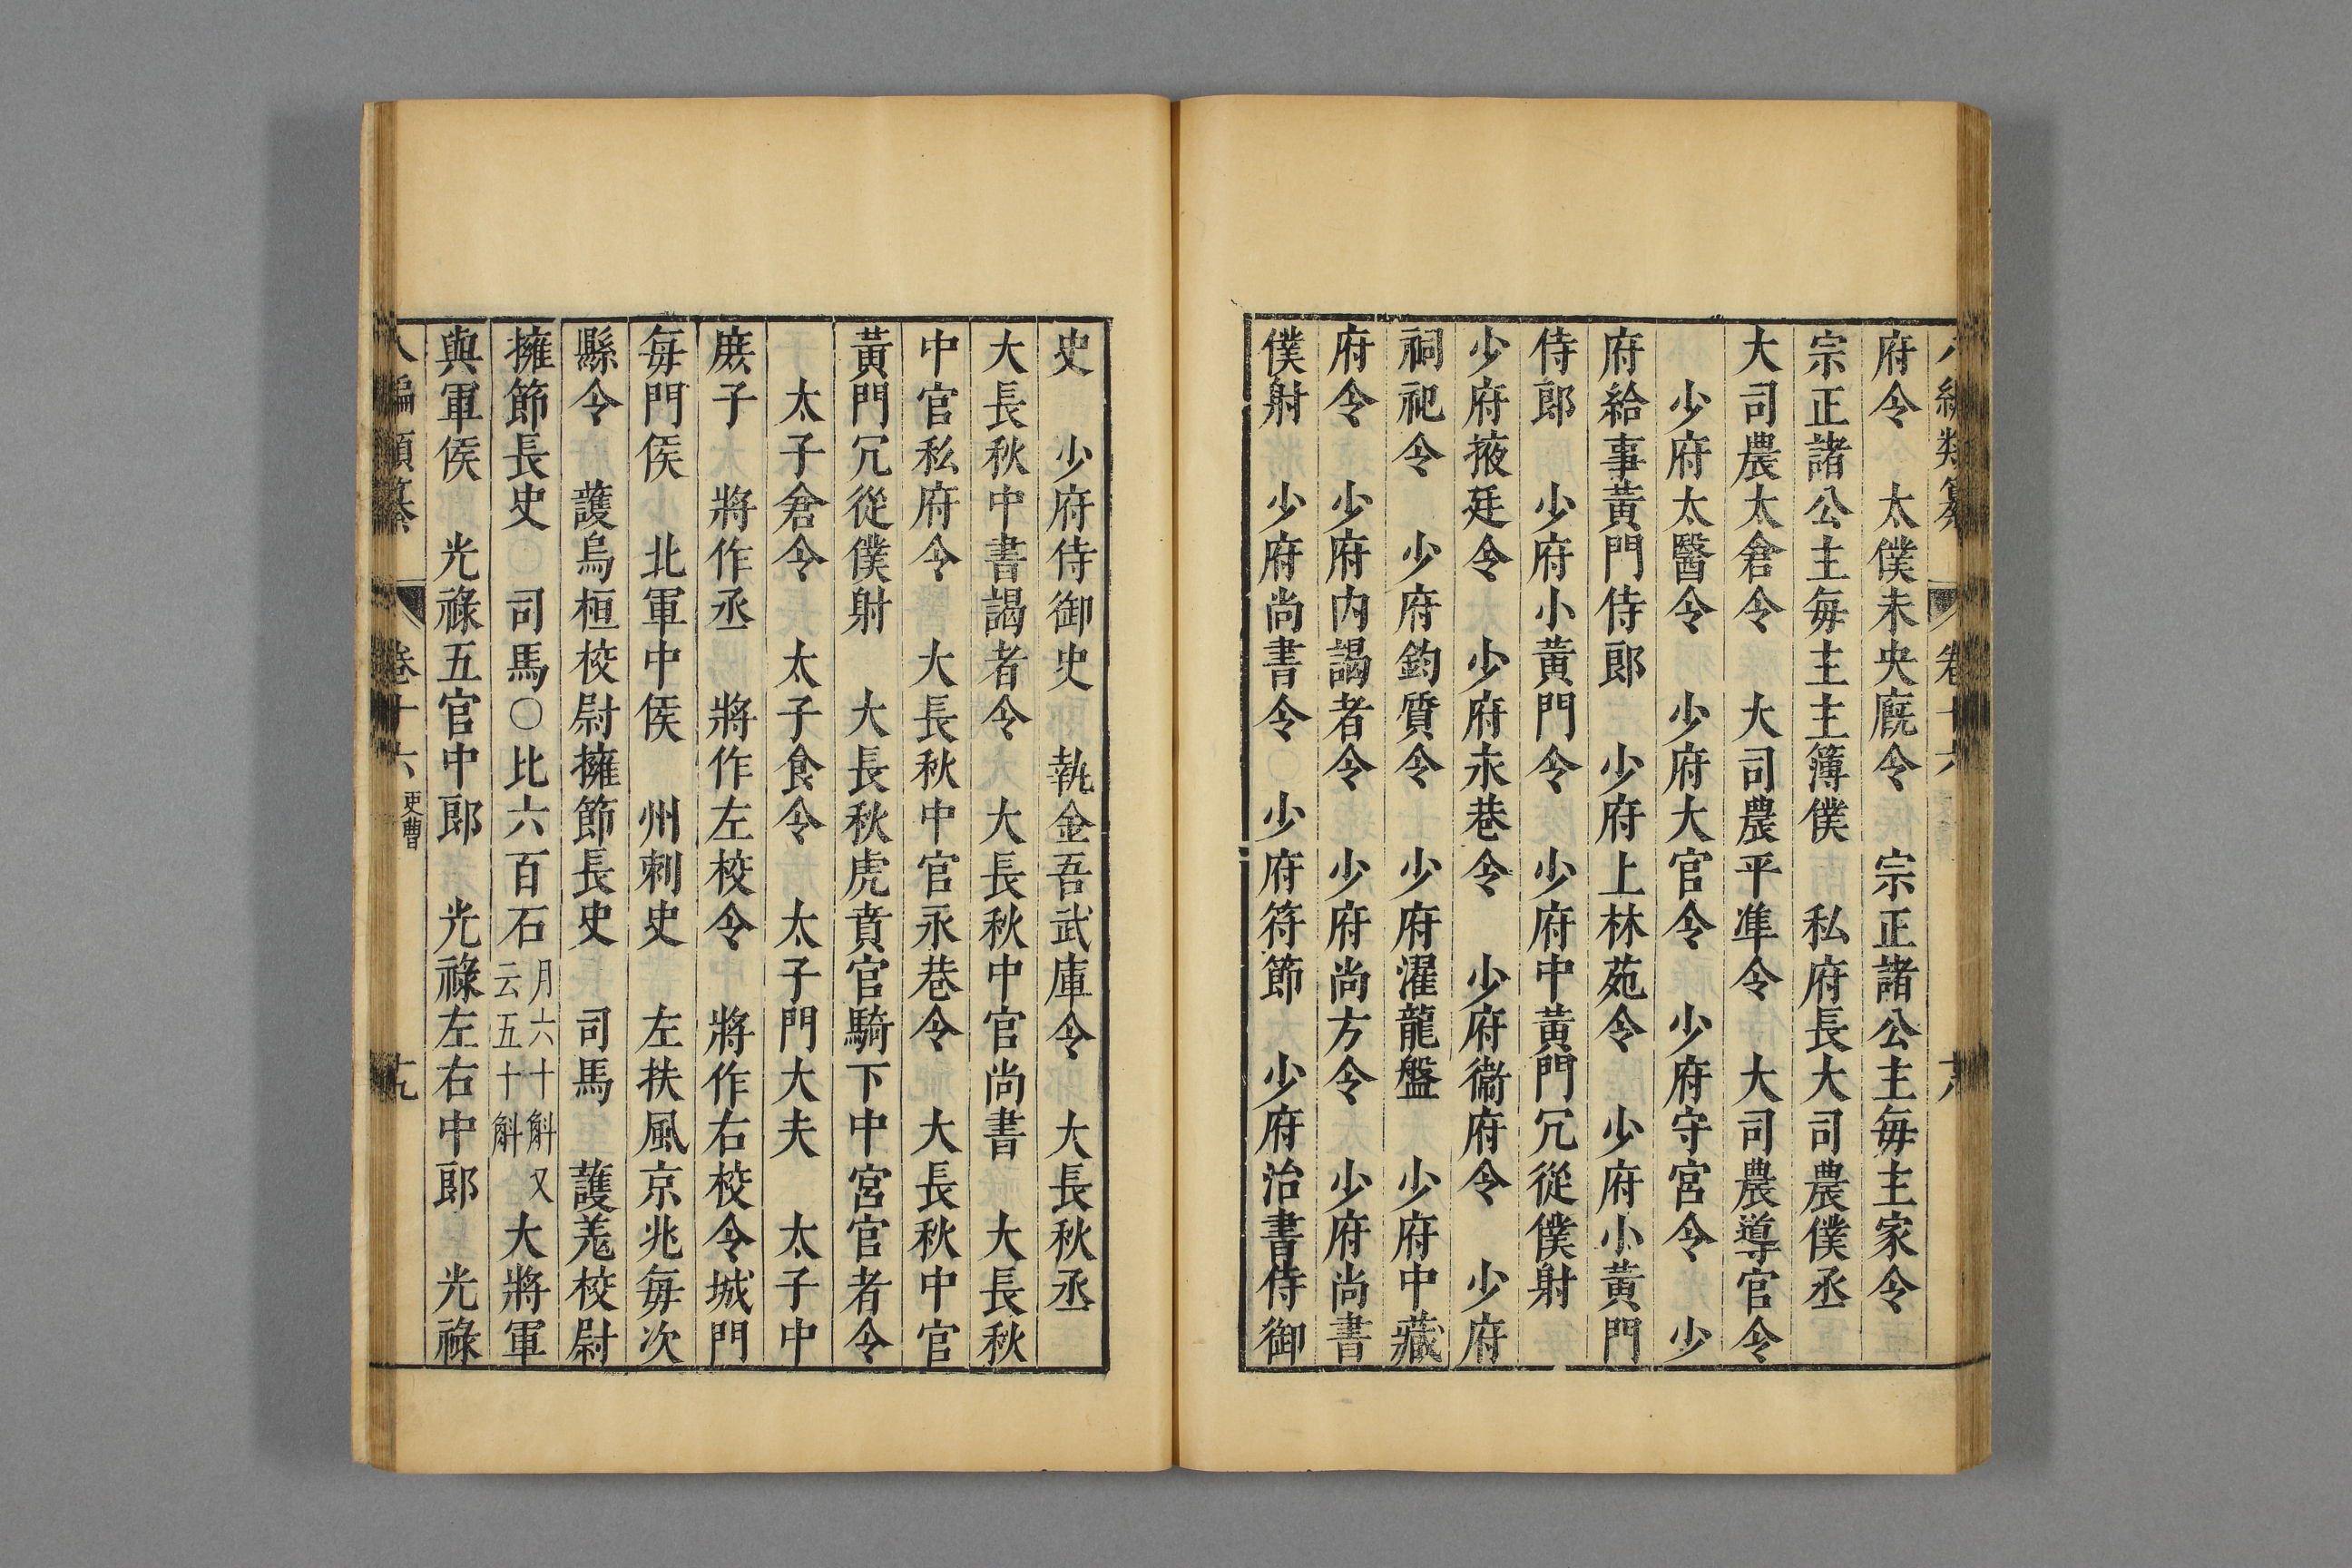 府令　太僕未央廐令　宗正諸公主毎主家令
宗正諸公主毎主主簿僕　私府長大司農僕丞
大司農太倉令　大司農平準令　大司農導官令
少府太醫令　少府大官令　少府守宮令　少
府給事黃門侍郎　少府上林苑令　少府小黃門
侍郎　少府小黃門令　少府中黃門冗從僕射
少府掖廷令　少府永巷令　少府衞府令　少府
祠祀令　少府鈎質令　少府濯龍盤　少府中藏
府令　少府内謁者令　少府尚方令　少府尚書
僕射　少府尚書令　少府符節　少府治書侍御
史　少府侍御史　執金吾武庫令　大長秋丞
大長秋中書謁者令　大長秋中官尚書　大長秋
中官私府令　大長秋中官永巷令　大長秋中官
黃門冗從僕射　大長秋虎賁官騎下中宮官者令
太子倉令　太子食令　太子門大夫　太子中
庻子　將作丞　將作左校令　將作右校令城門
毎門侯　北軍中侯　州刺史　左扶風京兆毎次
縣令　護烏桓校尉擁節長史　司馬　護羌校尉
擁節長史　司馬○比六百石月六十斛又云五十斛大將軍
與軍侯　光祿五官中郎　光祿左右中郎　光祿
八編類纂　卷十六吏曹　十九